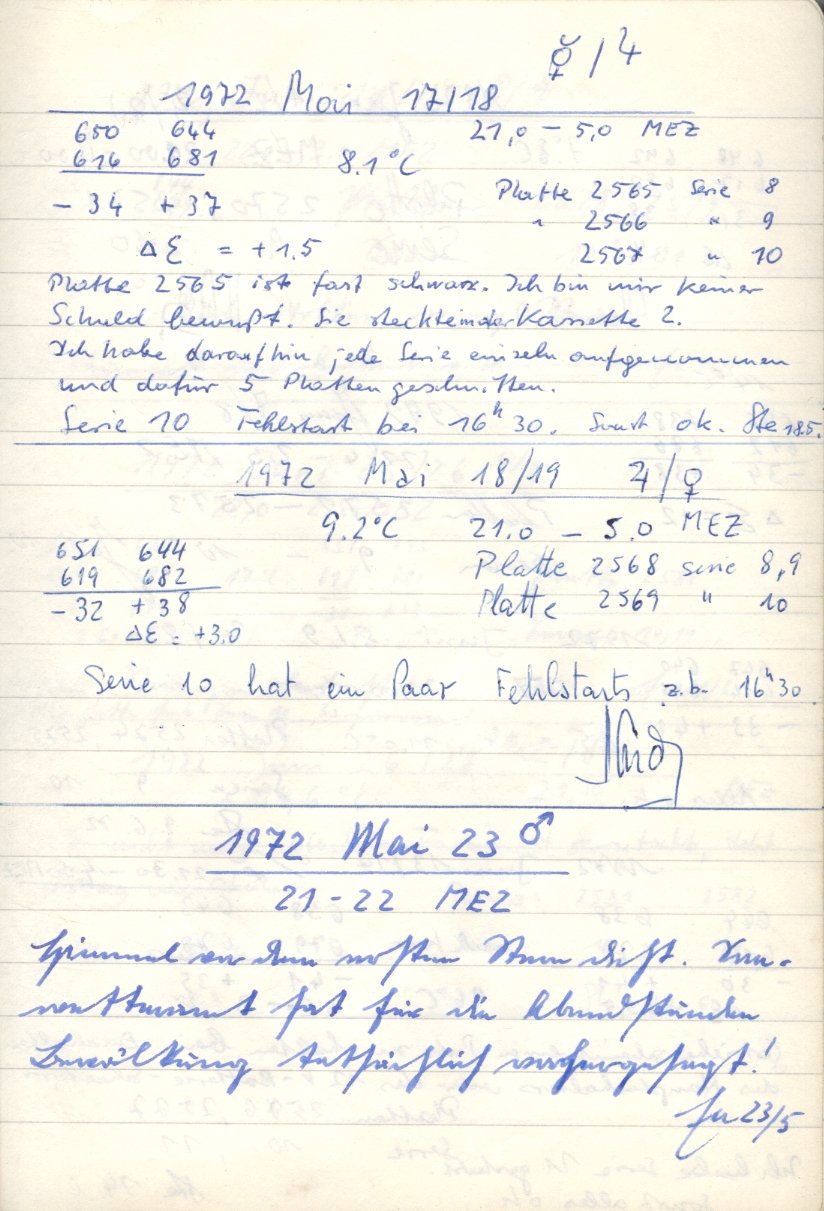 ☿/♃
1972 Mai 17/18
650 644 21,0 – 5,0 MEZ
616 681 8.1°C
Platte 2565 Serie 8
- 34 + 37
" 2566 " 9
Δ ξ = +1.5 2567 " 10
Platte 2565 ist fast schwarz. Ich bin mir keiner
Schuld bewußt. Sie steckte in der Kassette 2.
Ich habe daraufhin jede Serie einzeln aufgenommen
und dafür 5 Platten geschnitten.
Serie 10 Fehlstart bei 16ʰ30. Sonst ok. Ste 18.5.
1972 Mai 18/19 ♃/♀
9.2°C 21.0 – 5.0 MEZ
651 644
Platte 2568 Serie 8,9
619 682
Platte 2569 " 10
- 32 + 38
Δξ = +3.0
Serie 10 hat ein Paar Fehlstarts z.b. 16ʰ30
1972 Mai 23 ♂
21-22 MEZ
Himmel vor dem ersten Stern dicht.
wetteramt hat für die Abendstunden
Bewölkung tatsächlich vorhergesagt!
23/5